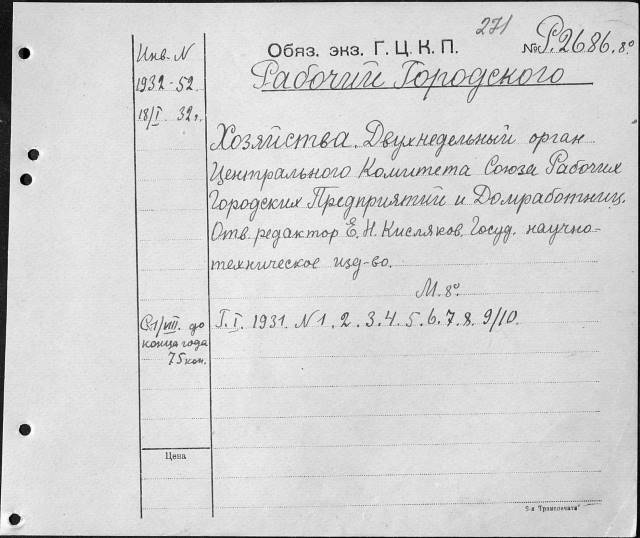 271
Инв. N
Обяз. экз. Г. Ц. К. П.
№ Р.2686. 8°
1932-52.
Рабочий Городского
18/I 32г.
Хозяйства. Двухнедельный орган
Центрального Комитета Союза Рабочих
Городских Предприятий и Домработниц.
Отв. редактор Е. Н. Кисляков. Госуд. научно-
техническое изд-во.
М. 8°.
С 1/VIII. до
конца года
75 коп.
Г. I. 1931. N 1. 2. 3. 4. 5. 6. 7. 8. 9/10.
Цена
"Транспечати"